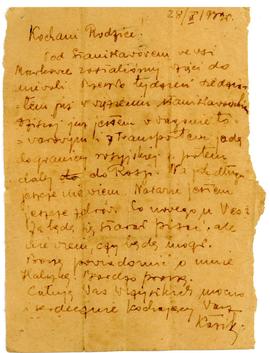 28/IX 1939r.
Kochani Rodzice.
Pod Stanisławowem we wsi
zostaliśmy wzięci do
niewoli. Przeszło tydzień siedzia-
łem już w więzieniu stanisławowskim
Dzisiaj już jestem w wagonie to-
warowym i z transportem jadę
do granicy rosyjskiej a potem
dalej do Rosji. Na jak długo
jeszcze nie wiem. Na razie jestem
jeszcze zdrów. Co nowego u Was?
Będę się starał pisać, ale
nie wiem, czy będę mógł.
Proszę powiadomić o mnie
Bardzo proszę.
Całuję Was wszystkich mocno
i serdecznie kochający Was